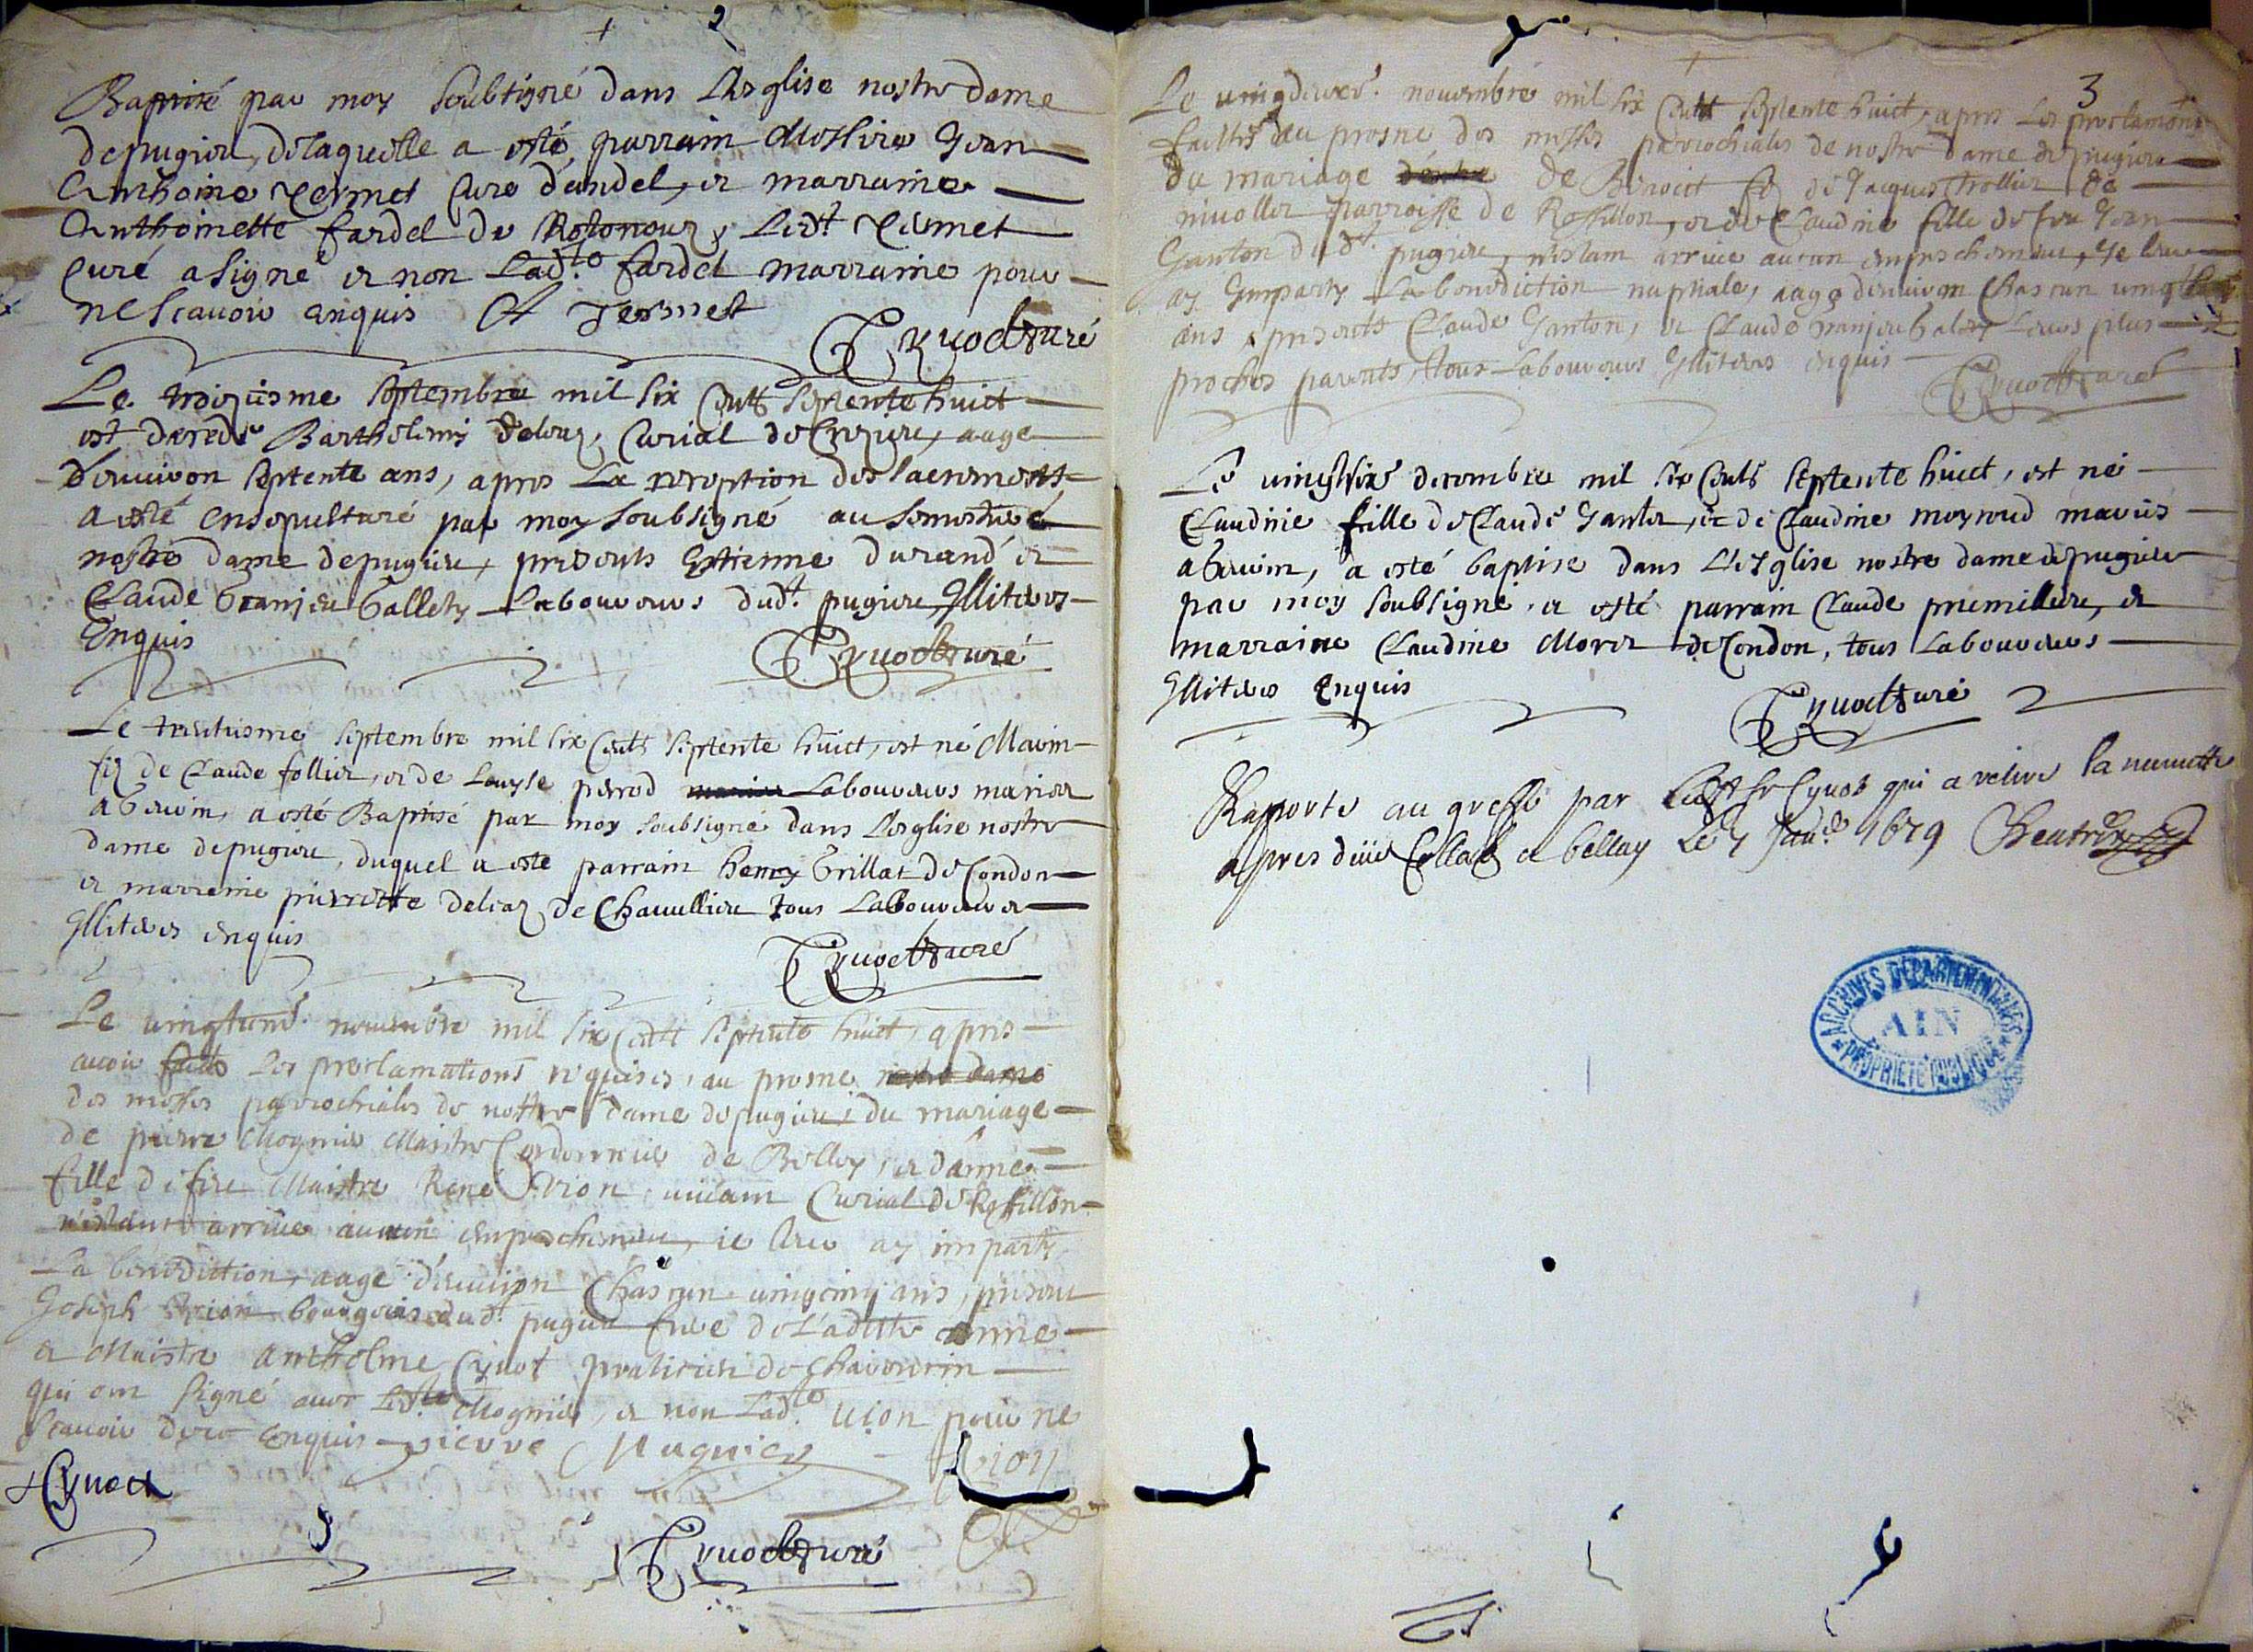 2
Baptisé par moy soubsigné dans L'esglise nostre dame
depugieu, de laquelle a esté parrain Messire Jean
Anthoine Termet Curé d'andel, et marraine
Anthoinette fardel de led.t Termet
curé a signé et non Lad.te fardel marraine pour
ne scavoir enquis A Termet
Cynod curé
Le troizisme septembre mil six cents septente huict
est decedé Barthelemy Curial de aage
d'enuiron septente ans, apres La reception des sacrements
a esté ensepulturé par moy soubsigné au
nostre dame depugieu, presents Estienne durand et
Claude Granjeu Gallety Laboureurs dud.t pugieu Illiteres
Enquis
Cynod curé
Le trentisme septembre mil six cents septente huict, est né
filz de Claude follier, et de Louyse perrod Laboureurs mariez
a a esté Baptisé par moy soubsigné dans L'esglise nostre
dame depugieu, duquel a esté parrain henry Trillat de Condon
et marreine pierrette de Chauillieu tous Laboureurs
Illiteres enquis
Cynod curé
Le nouembre mil six cents septente huict, apres
auoir faict les proclamations requises, au prosne nostre dame
des messes parrochiales de nostre dame depugieu, du mariage
de pierre Mognier Maistre Cordonnier de Belley, et d'anne
fille de feu Maistre René Vion, uiuant Curial de Rossillon
n'estant arriué aucun empeschement, ie leur ay imparty
La benediction, aagé d'enuiron chascun uingcinq ans, present
Joseph Vion bourgeois dud.t pugieu frere de Ladicte anne
et Maistre Anthelme Cynot praticien de Chauornin
qui ont signé auec Led.t Mognier, et non Lad.te Vion pour ne
scauoir de ce enquis pierre Mugnier Vion
Cynod
Cynod curé
3
Le nouembre mil six cents septente huict, apres Les proclamations
faictes au prosne des messes parrochiales de nostre dame depugieu
du mariage de Benoict filz de Jacques Trollier de
parroisse de Rossillon, et de Claudine fille de feu Jean
Ganton dud.t pugieu, n'estant arriué aucun empeschement, je leur
ay Imparty La benediction nuptiale, aagé d'enuiron Chascun
ans, presents Claude Ganton, et Claude Granjeu Galety Leurs plus
proches parents, tous Laboureurs Illiteres enquis
Cynod curé
Le uingtsixe decembre mil six cents septente huict, est né
Claudine fille de Claude Ganton, et de Claudine moynoud mariés
a a esté baptisé dans L'esglise nostre dame depugieu
par moy soubsigné, a esté parrain Claude premillieu, et
marraine Claudine Morel de Condon, tous Laboureurs
Illiteres Enquis
Cynod curé
Raporté au greffe par Led.t Sr Cynod qui a retiré la minutte
apres diue Colla.on a belley Le 7 Janu.er 1679
ARCHIVES DÉPARTEMENTALES
AIN
PROPRIÉTÉ PUBLIQUE